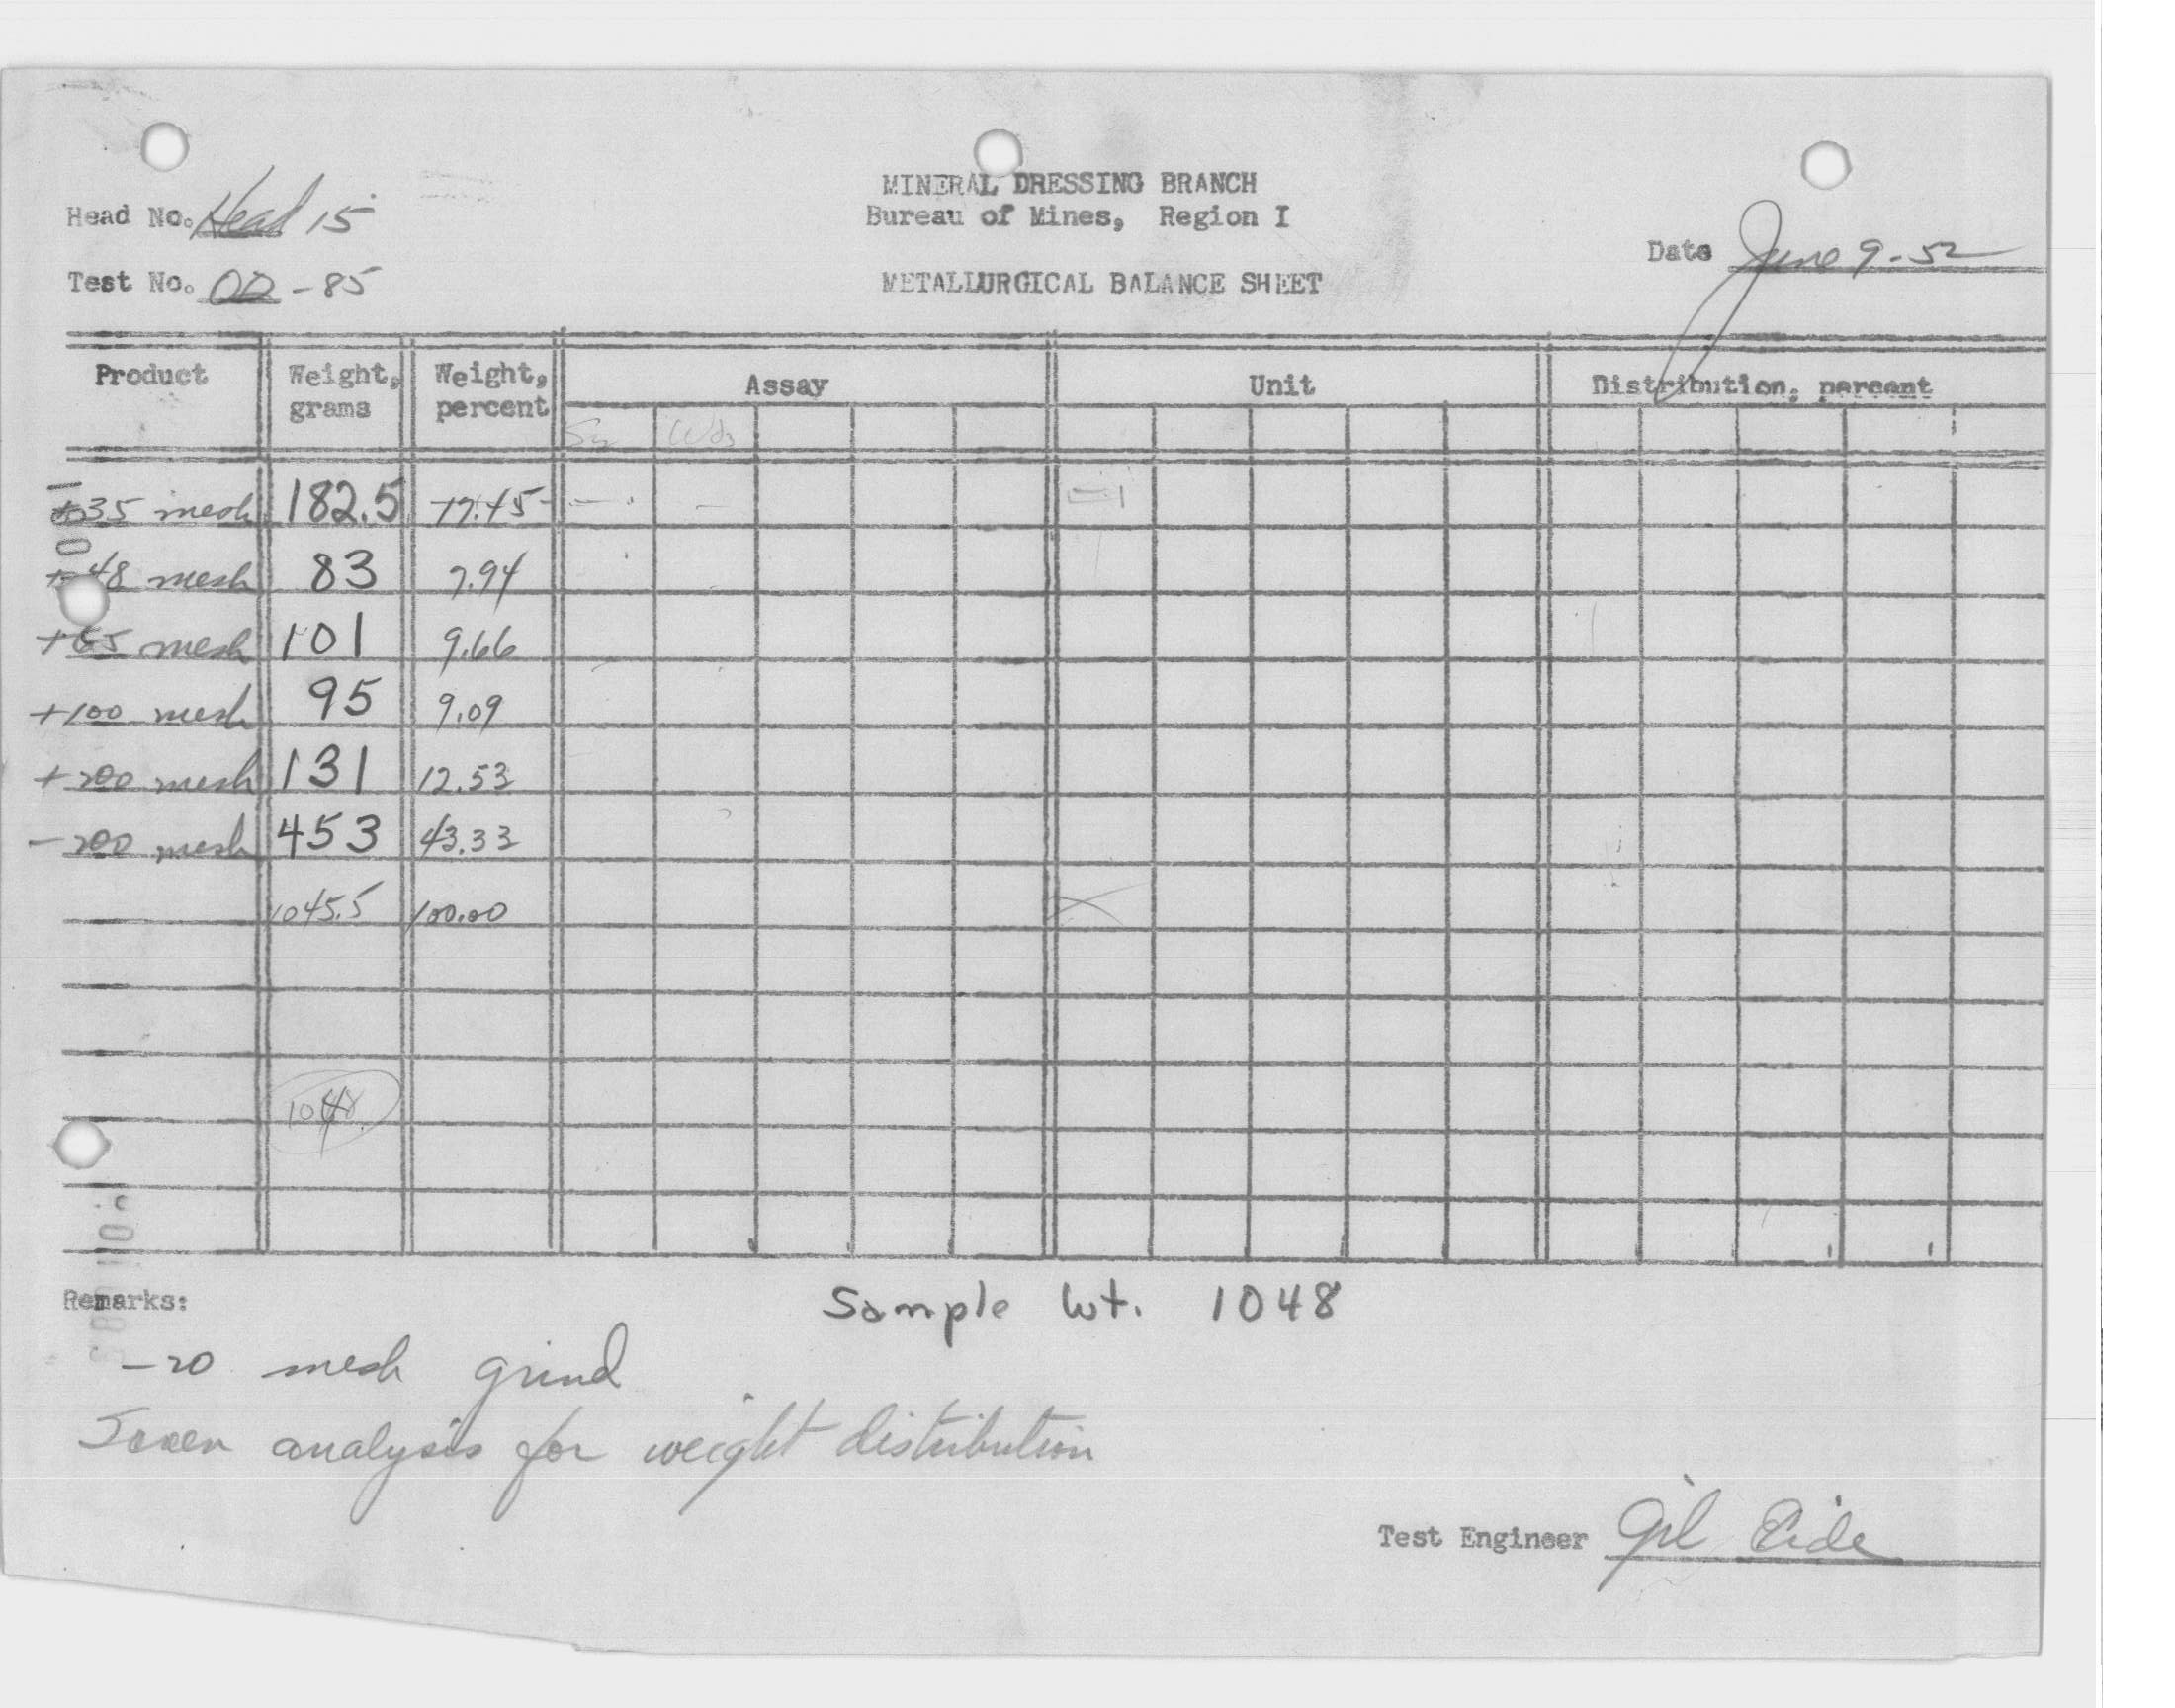 MINERAL DRESSING BRANCH
Head No. Head 15
Bureau of Mines, Region I
Date June 9-52
Test No. OD-85
METALLURGICAL BALANCE SHEET
Product Weight, grams Weight, percent Assay Unit Distribution, percent
Sn WO3
+35 mesh 182.5 17.45
+48 mesh 83 7.94
+65 mesh 101 9.66
+100 mesh 95 9.09
+200 mesh 131 12.53
-200 mesh 453 43.33
1045.5 100.00
1048
Remarks:
Sample Wt. 1048
-20 mesh grind
analysis for weight distribution
Test Engineer Gil Eide